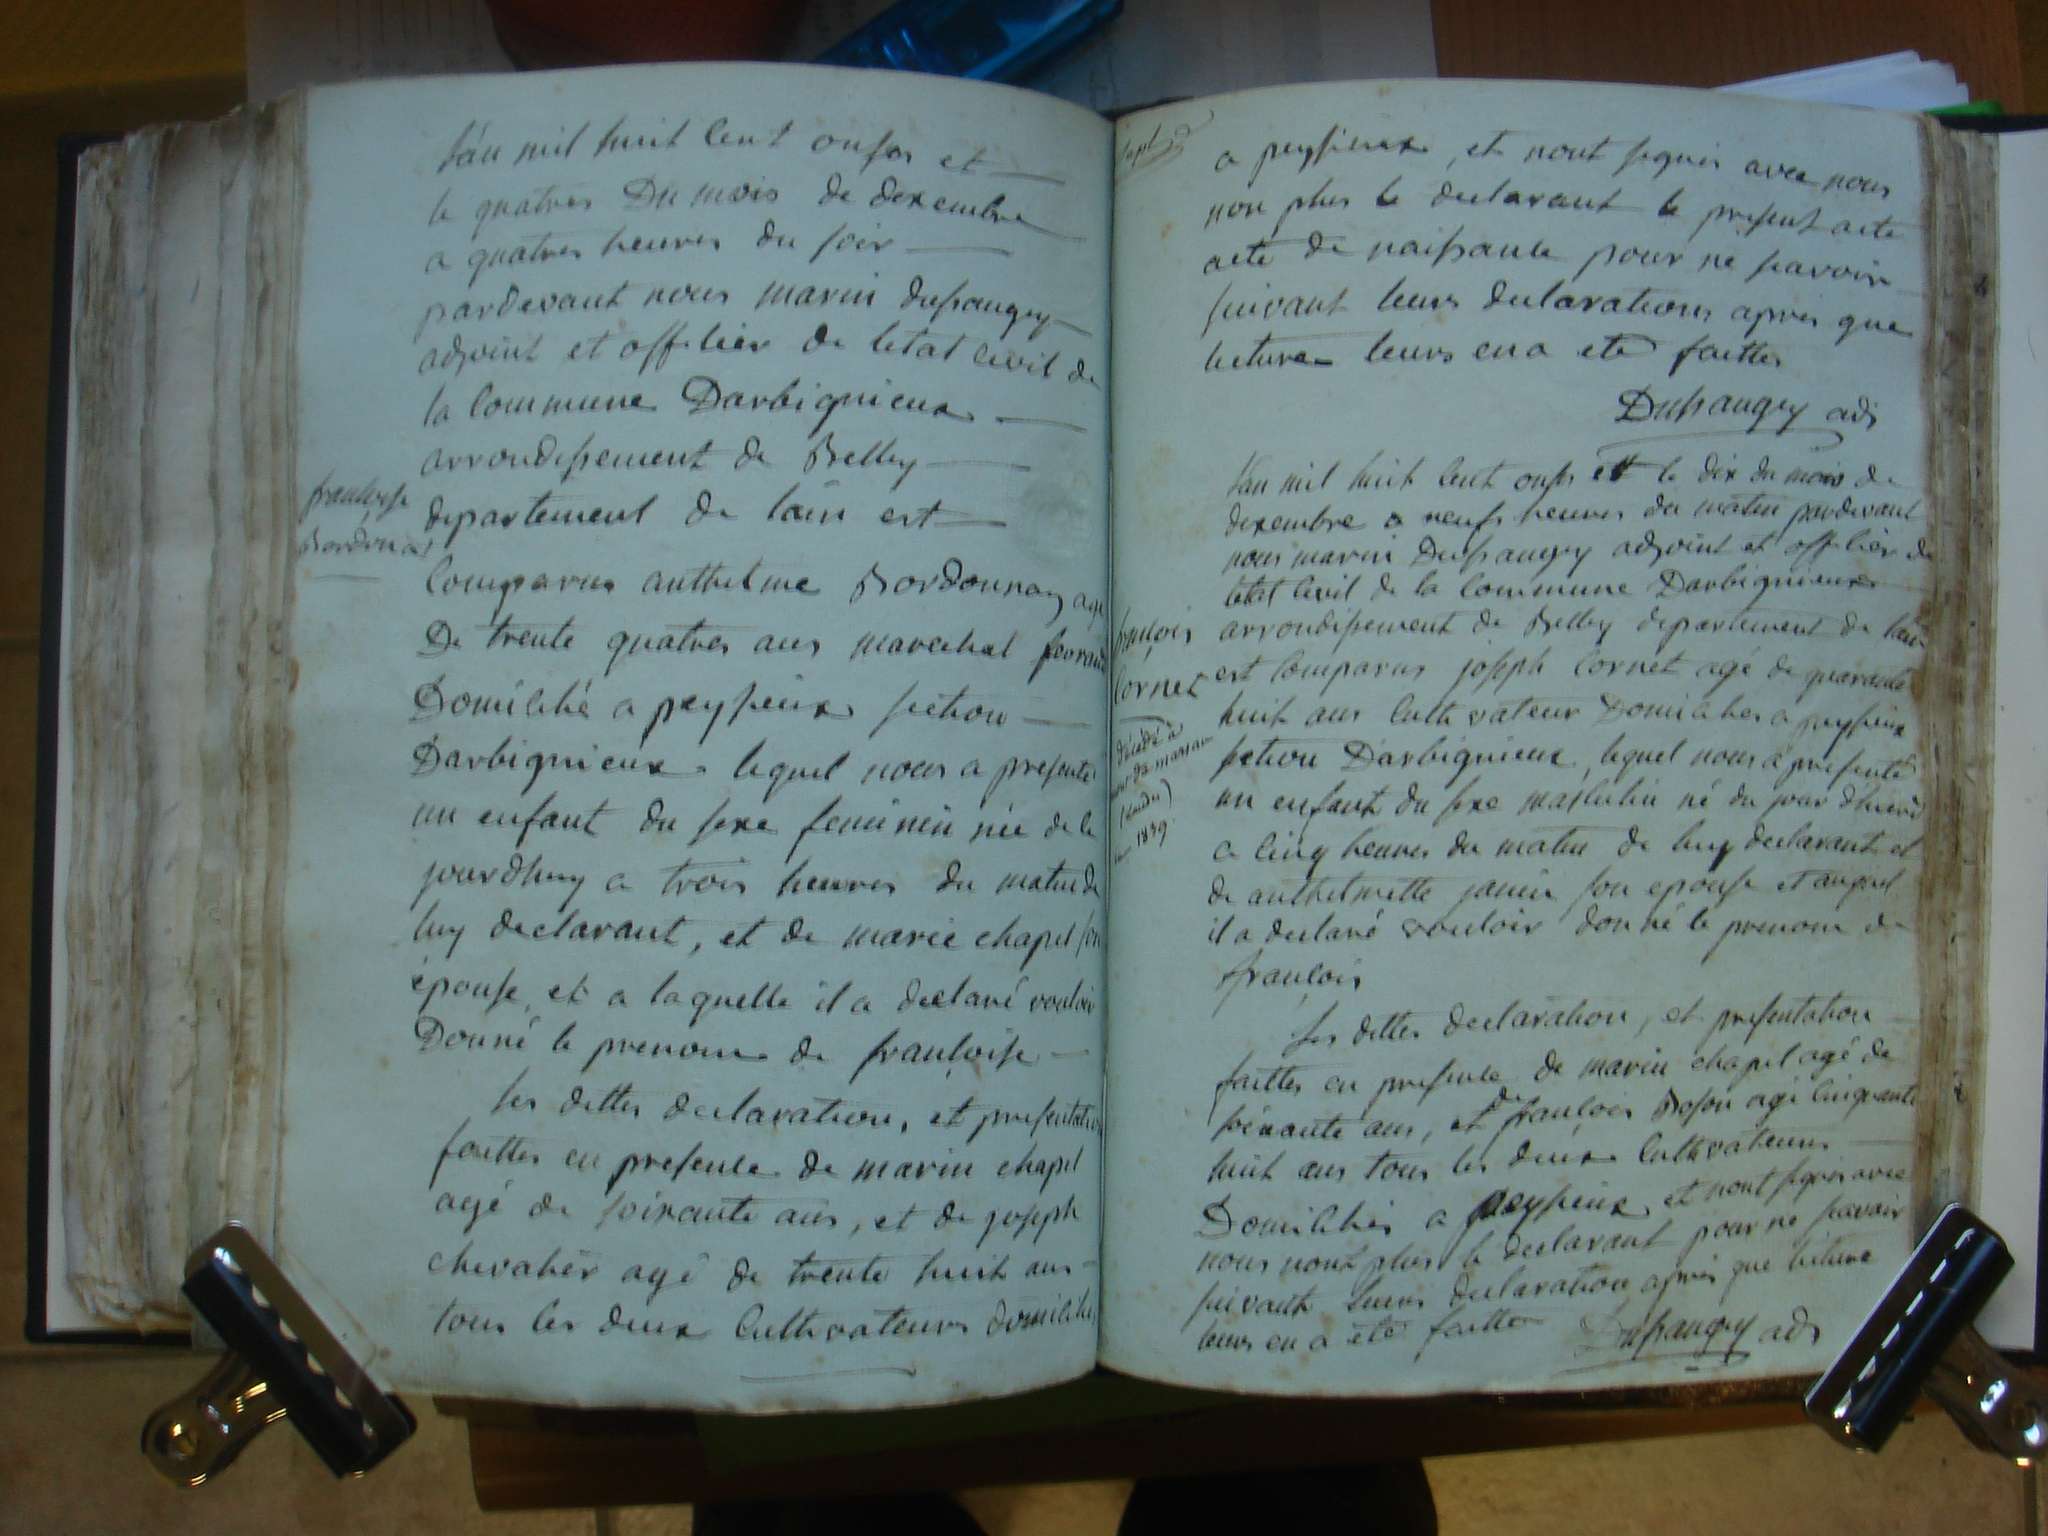 L'an mil huit cent onses et
le quatres Du mois de dexembre
a quatres heures du soir
pardevant nous marin dussaugey
adjoint et officier de letat civil de
la commune Darbignieux
arrondissement de Belley
departement de lain est
françoise
Bordonnat
comparus anthelme Bordonnay agé
De trente quatres ans marechal ferrand
Domicilié a peyzieux section
Darbignieux lequel nous a presenté
un enfant du sexe feminin née de ce
jourdhuy a trois heures du matin de
luy declarant, et de marie chapel son
épouse, et a laquelle il a declaré vouloir
Donné le prenom de françoise
les dittes declaration, et presentation
faittes en presence de marin chapel
agé de soixante ans, et de joseph
chevalier agé de trente huit ans
tous les deux cultivateurs domiciliés
a peyzieux, et nont signés avec nous
non plus le declarant le present acte
acte de naissance pour ne savoir
suivant leurs declarations apres que
lecture leurs en a eté faittes
Dussaugey adj
L'an mil huit cent onses et le dix du mois de
dexembre a neufs heures du matin pardevant
nous marin Dussaugey adjoint et officier de
letat civil de la commune Darbignieux
arrondissement de Belley departement de lain
françois
Cornet
décédé à
1839
est comparus joseph Cornet agé de quarante
huit ans cultivateur Domicilies a peyzieux
section Darbignieux, lequel nous a presenté
un enfant du sexe masculin né du jour dhuy
a cinq heures du matin de luy declarant et
de anthelmette janin son epouse et auquel
il a declaré vouloir donné le prenom de
françois
les dittes declaration, et presentation
faittes en presence de marin chapel agé de
soixante ans, et de françois Boson agé cinquante
huit ans tous les deux cultivateurs
Domiciliés a peyzieux et nont signés avec
nous nont plus le declarant pour ne savoir
suivant leurs declaration après que lecture
leurs en a eté faitte Dussaugey adj